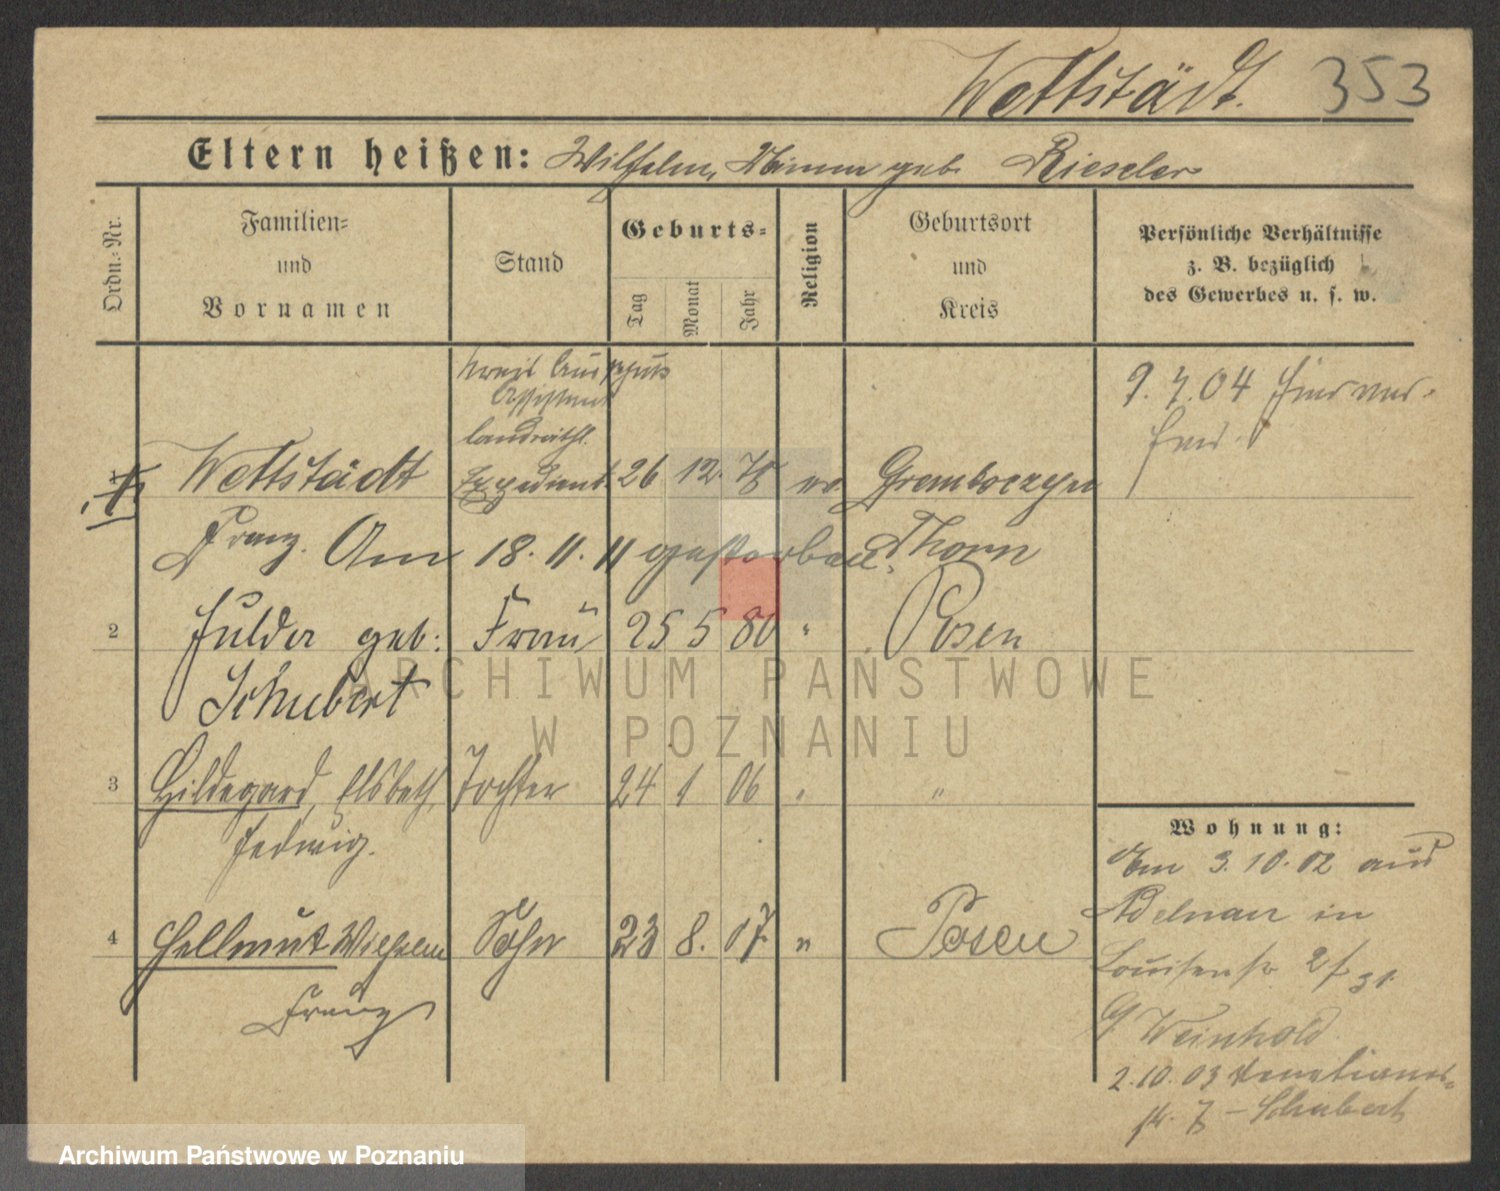 Wettstädt. 353
Eltern heißen: Wilhelm, Minna geb. Rieseler
Ordn.-Nr.
Familien-
und
Vornamen
Stand
Geburts-
Tag Monat Jahr
Religion
Geburtsort
und
Kreis
Persönliche Verhältnisse
z. B. bezüglich
des Gewerbes u. s. w.
Kreis Ausschuß
Assistent
landräthl.
Wettstädt Expedient 26 12. 78 ev. Gremboczyn
Franz. Am 18. 11. 11 gestorben. Thorn
9. 7. 04
2 Hulda geb: Frau 25 5 80 " Posen
Schubert
3 Hildegard, Elsbeth, Tochter 24 1 06 " "
Hedwig.
4 Hellmut Wilhelm Sohn 23 8. 07 " Posen
Franz
Wohnung:
Am 3. 10. 02 aus
Adelnau in
Louisenstr.
Weinhold.
2. 10. 03 Venetianer-
str. 7 – Schubert
ARCHIWUM PAŃSTWOWE
W POZNANIU
Archiwum Państwowe w Poznaniu